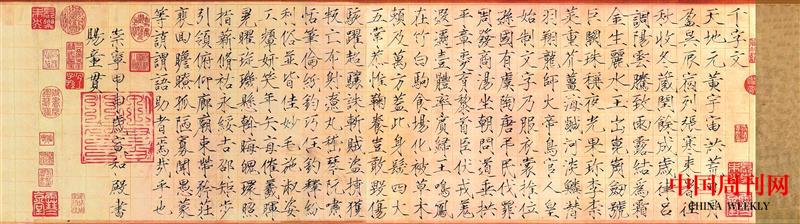 千字文
天地元黃宇宙洪荒日月
盈昃辰宿列張寒來暑往
秋收冬藏閏餘成歲律呂
調陽雲騰致雨露結為霜
金生麗水玉出崑崗劍號
巨闕珠稱夜光果珍李柰
菜重芥薑海鹹河淡鱗潛
羽翔龍師火帝鳥官人皇
始制文字乃服衣裳推位
遜國有虞陶唐弔民伐罪
周發商湯坐朝問道垂拱
平章愛育黎首臣伏戎羌
遐邇壹體率賓歸王鳴鳳
在竹白駒食場化被草木
賴及萬方蓋此身髮四大
五常恭惟鞠養豈敢毀傷
駭躍超驤誅斬賊盜捕獲
叛亡布射僚丸嵇琴阮嘯
恬筆倫紙鈞巧任釣釋紛
利俗並皆佳妙毛施淑姿
工顰妍笑年矢每催羲暉
晃曜琁璣懸斡晦魄環照
指薪脩祜永綏吉邵矩步
引領俯仰廊廟束帶矜莊
裵回瞻眺孤陋寡聞愚蒙
等誚謂語助者焉哉乎也
崇寧甲申歲宣和殿書
賜童貫
中国周刊网
CHINA WEEKLY